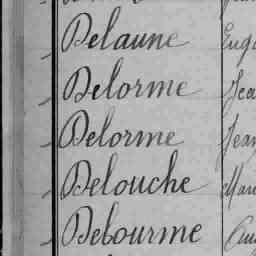 Delaune Eug
Delorme Jea
Delorme Jean
Delouche Mar
Debourme